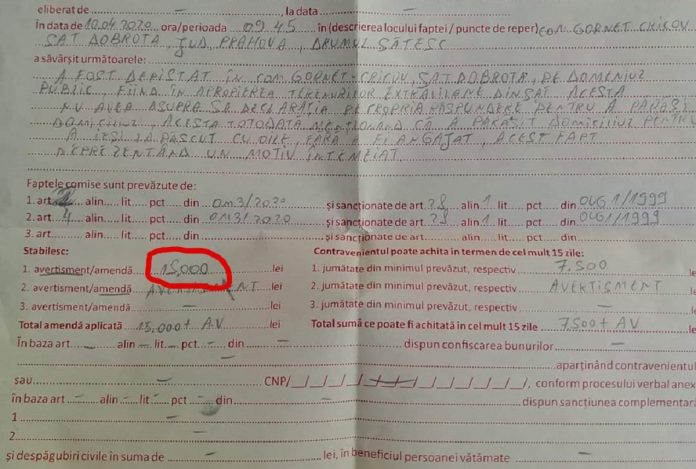 eliberat de — , la data —
în data de 10.04.2020 ora/perioada 09 45 în (descrierea locului faptei / puncte de reper) COM. GORNET CRICOV
SAT DOBROTA, JUD PRAHOVA, DRUMUL SĂTESC
a săvârșit următoarele:
A FOST DEPISTAT ÎN COM. GORNET-CRICOV, SAT DOBROTA, PE DOMENIUL
PUBLIC, FIIND ÎN APROPIEREA TERENURILOR EXTRAVILANE DIN SAT ACESTA
NU AVEA ASUPRA SA DECLARAȚIA PE PROPRIA RĂSPUNDERE PENTRU A PĂRĂSI
DOMICILIUL, ACESTA TOTODATĂ MENȚIONÂND CĂ A PĂRĂSIT DOMICILIUL PENTRU
A IEȘI LA PĂSCUT CU OILE, FĂRĂ A FI ANGAJAT, ACEST FAPT
NEREPREZENTÂND UN MOTIV ÎNTEMEIAT
Faptele comise sunt prevăzute de:
1. art. alin. lit. pct. din OM3/2020 și sancționate de art. 28 alin 1 lit. pct din OUG 1/1999
2. art. 4 alin. lit. pct. din OM3/2020 și sancționate de art. 28 alin 1 lit. pct din OUG 1/1999
3. art. alin. lit. pct. din — și sancționate de art. alin. lit. pct din
Stabilesc: Contravenientul poate achita în termen de cel mult 15 zile:
1. avertisment/amendă 15,000 lei 1. jumătate din minimul prevăzut, respectiv 7.500 le
2. avertisment/amendă AVERTISMENT lei 2. jumătate din minimul prevăzut, respectiv AVERTISMENT le
3. avertisment/amendă — lei 3. jumătate din minimul prevăzut, respectiv — le
Total amendă aplicată 15.000+ AV lei Total sumă ce poate fi achitată în cel mult 15 zile 7500+ AV le
În baza art — alin — lit — pct — din — dispun confiscarea bunurilor —
— aparținând contravenientul
sau — CNP/_/_/_/_/_/_/_/_/_/_/_/_/_/, conform procesului verbal anex
în baza art — alin — lit — pct din — dispun sancțiunea complementară
1 —
2 —
și despăgubiri civile în suma de — lei, în beneficiul persoanei vătămate —